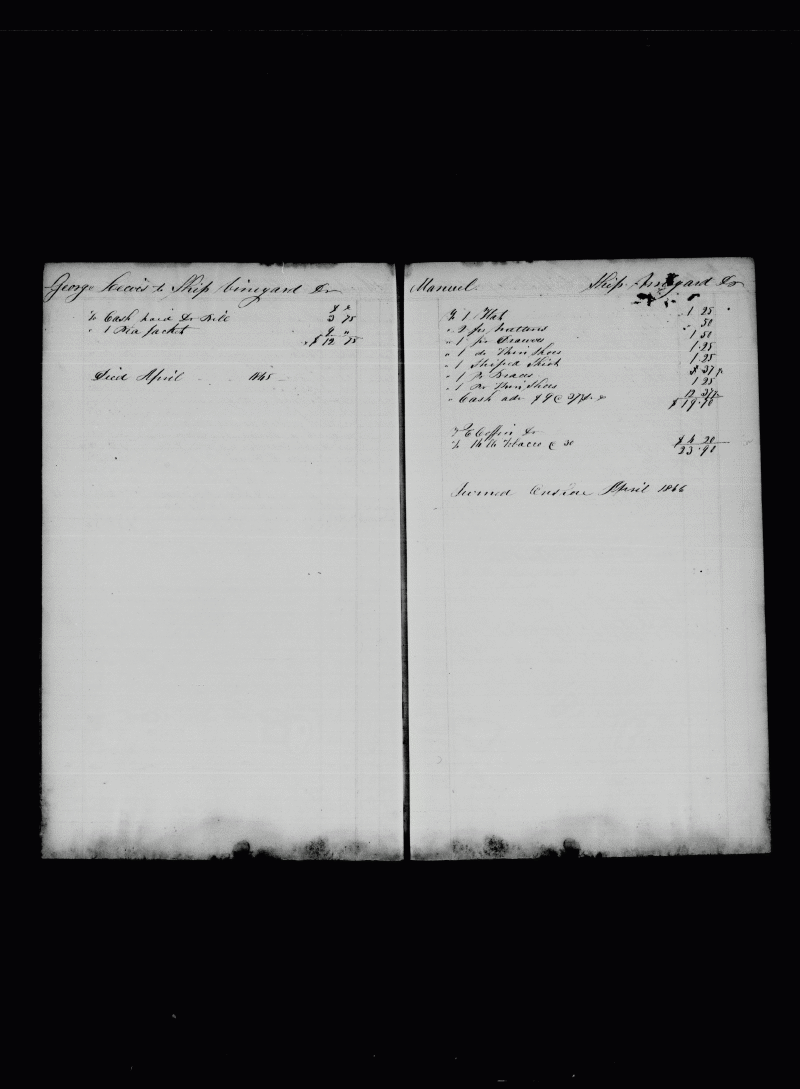 George Lewis to Ship Vineyard Dr
$ c
To Cash paid Dr Bill 3 75
" 1 Pea Jacket 9 "
$ 12 75
Died April 1865
Manuel Ship Vineyard Dr
To 1 Hat 1 25
" 2 pr 50
" 1 pr Drawers 1 50
" 1 do Thin Shoes 1.25
" 1 Striped Shirt 1 25
" 1 Pr Braces 37½
" 1 Pr Thin Shoes 1 25
" Cash adv $9 12 37½
$ 19.70
T E Coffin Dr
To 14 lb Tobacco @ 30 $ 4 20
23.90
April 1866